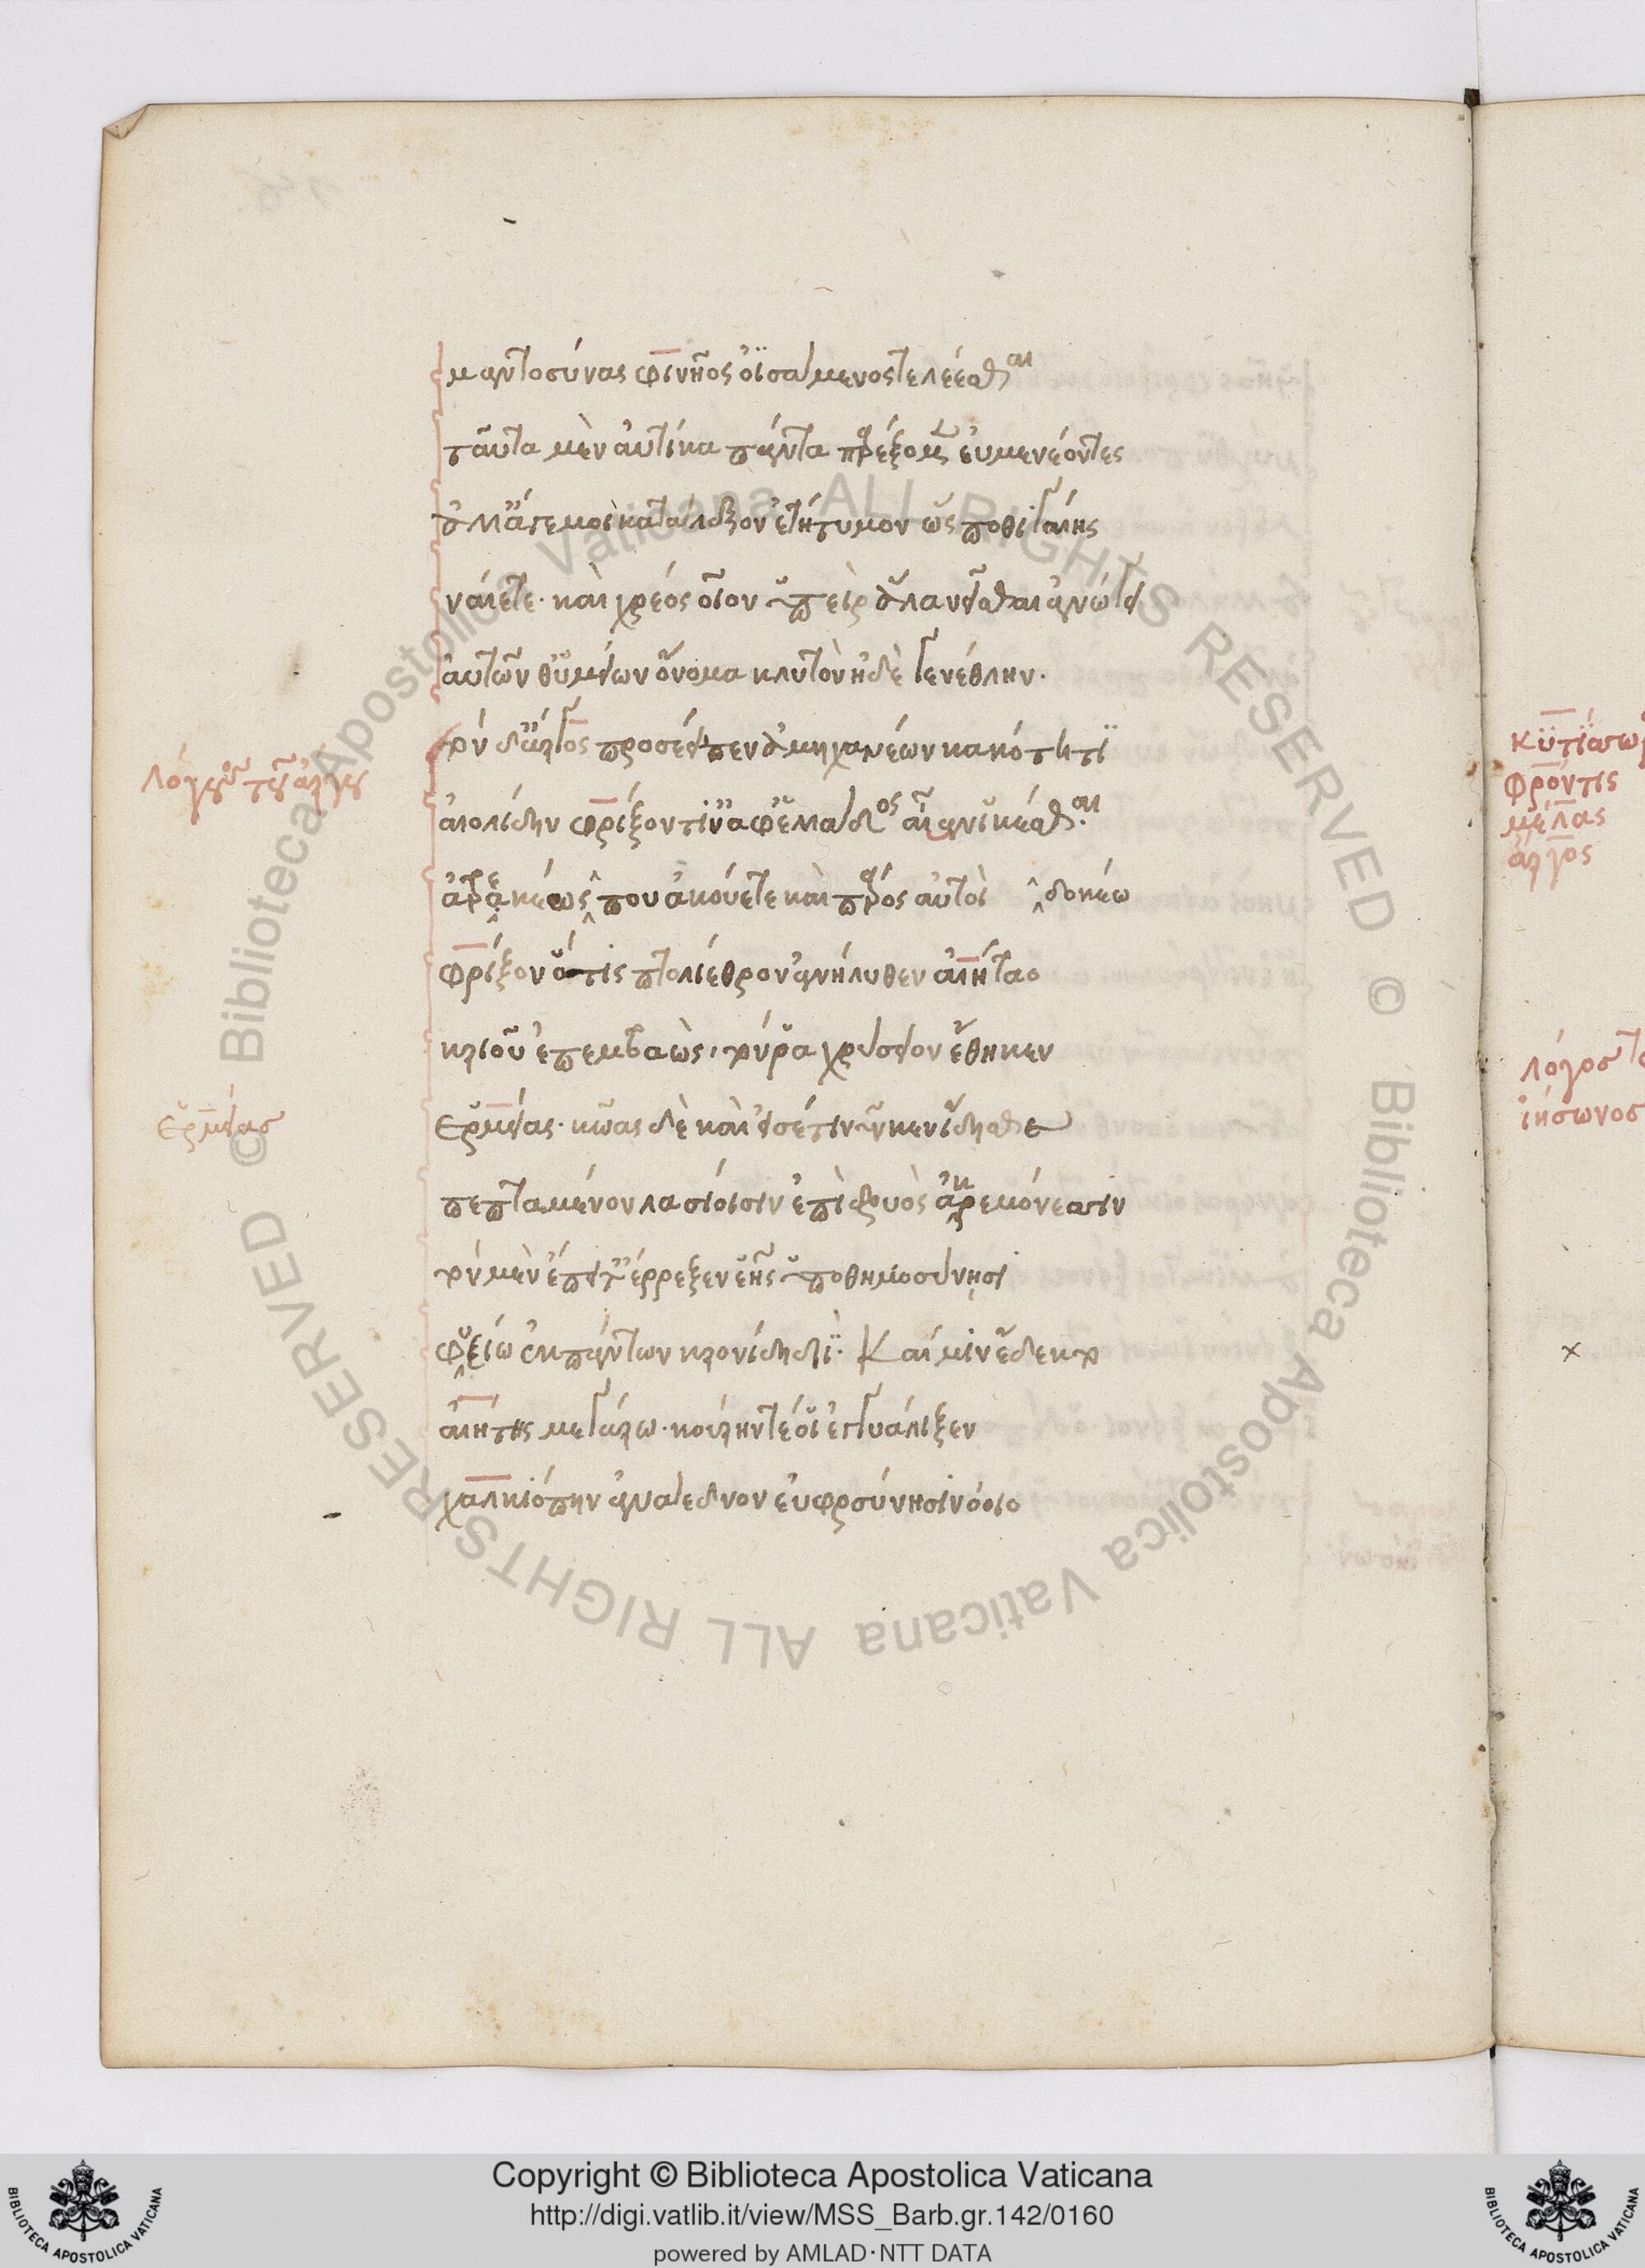 μαντοσύνας φινῆος ὀϊσάμενος τελέεσθαι
ταῦτα μὲν αὐτίκα πάντα παρέξομεν εὐμενέοντες
ἀλλ' ἄγε μοι κατάλεξον ἐτήτυμον ὥς ποθι γαίης
ναίετε· καὶ χρέος οἷον ὑπεὶρ ἅλα νεῖσθαι ἀνώγει
αὐτῶν θ' ὑμείων ὄνομα κλυτὸν ἠδὲ γενέθλην.
τὸν δ' ἄργος προσέειπεν ἀμηχανέων κακότητι
λόγος τοῦ ἄργου
αἰολίδην φρίξον τιν' ἀφ' ἑλλάδος αἶαν ἱκέσθαι.
ἀτρεκέως που ἀκούετε καὶ πάρος αὐτοὶ δοκέω
φρίξον ὅτις πτολίεθρον ἀνήλυθεν αἰήταο
κριοῦ ἐπεμβαὼς, τόν ῥα χρύσειον ἔθηκεν
ἑρμείας
ἑρμείας· κῶας δὲ καὶ εἰσέτι νῦν κεν ἴδησθε
πεπταμένον λασίοισιν ἐπὶ δρυὸς ἀκρεμόνεσσιν
τὸν μὲν ἔπειτ' ἔρρεξεν ἑῆς ὑποθημοσύνησι
φυξίω ἐκ πάντων κρονίδη διί· Καί μιν ἔδεκτο
αἰήτης μεγάρω· κούρην τέ οἱ ἐγγυάλιξεν
χαλκιόπην ἀνάεδνον εὐφροσύνησι νόοιο
κυτίσσωρ
φρόντις
μέλας
ἄργος
λόγος
ἰήσωνος
Copyright © Biblioteca Apostolica Vaticana
http://digi.vatlib.it/view/MSS_Barb.gr.142/0160
powered by AMLAD·NTT DATA
BIBLIOTECA APOSTOLICA VATICANA
BIBLIOTECA APOSTOLICA VATICANA
© Biblioteca Apostolica Vaticana ALL RIGHTS RESERVED © Biblioteca Apostolica Vaticana ALL RIGHTS RESERVED